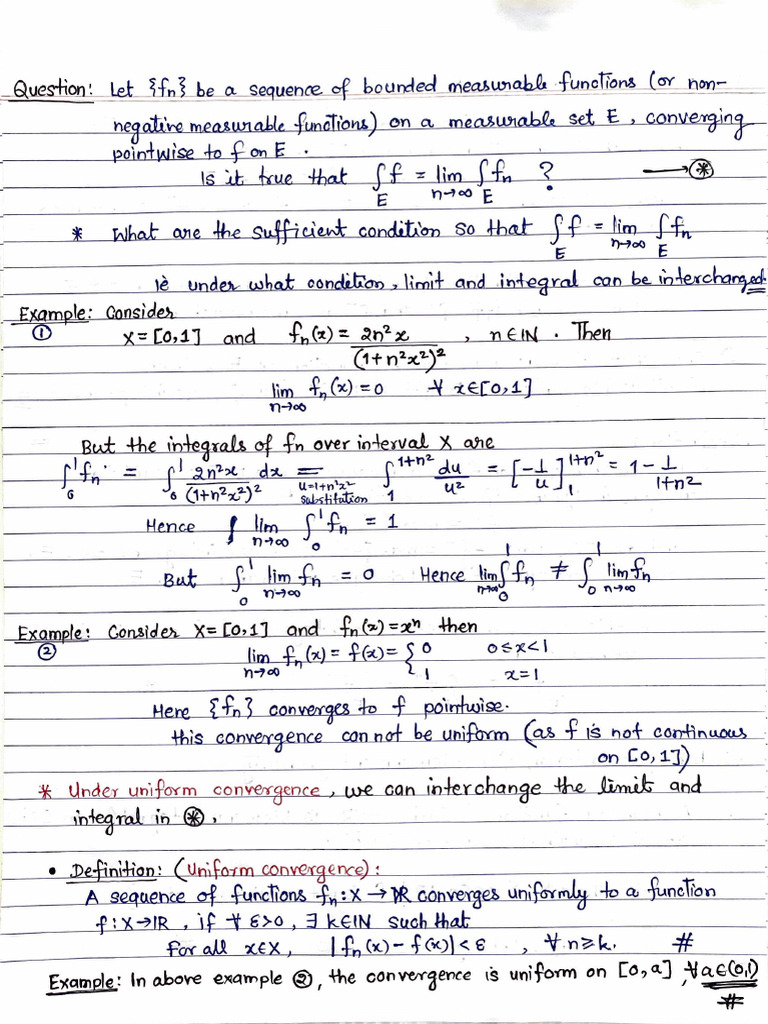 Question: Let {fn} be a sequence of bounded measurable functions (or non-
negative measurable functions) on a measurable set E, converging
pointwise to f on E.
Is it true that ∫_E f = lim_{n→∞} ∫_E fn ? ⟶ ⊛
* What are the sufficient condition so that ∫_E f = lim_{n→∞} ∫_E fn
ie under what condition, limit and integral can be interchanged.
Example: Consider
① X = [0,1] and fn(x) = 2n²x / (1+n²x²)² , n∈ℕ. Then
lim_{n→∞} fn(x) = 0 ∀ x∈[0,1]
But the integrals of fn over interval X are
∫_0^1 fn = ∫_0^1 2n²x/(1+n²x²)² dx = (u=1+n²x² substitution) ∫_1^{1+n²} du/u² = [-1/u]_1^{1+n²} = 1 - 1/(1+n²)
Hence lim_{n→∞} ∫_0^1 fn = 1
But ∫_0^1 lim_{n→∞} fn = 0 Hence lim_{n→∞} ∫_0^1 fn ≠ ∫_0^1 lim_{n→∞} fn
Example: Consider X = [0,1] and fn(x) = xⁿ then
② lim_{n→∞} fn(x) = f(x) = { 0 0≤x<1
1 x=1
Here {fn} converges to f pointwise.
this convergence can not be uniform (as f is not continuous
on [0,1])
* Under uniform convergence, we can interchange the limit and
integral in ⊛,
• Definition: (Uniform convergence):
A sequence of functions fn: X→ℝ converges uniformly to a function
f: X→ℝ, if ∀ ε>0, ∃ k∈ℕ such that
for all x∈X, |fn(x) - f(x)| < ε , ∀ n≥k. #
Example: In above example ②, the convergence is uniform on [0,a], ∀a∈(0,1)
#